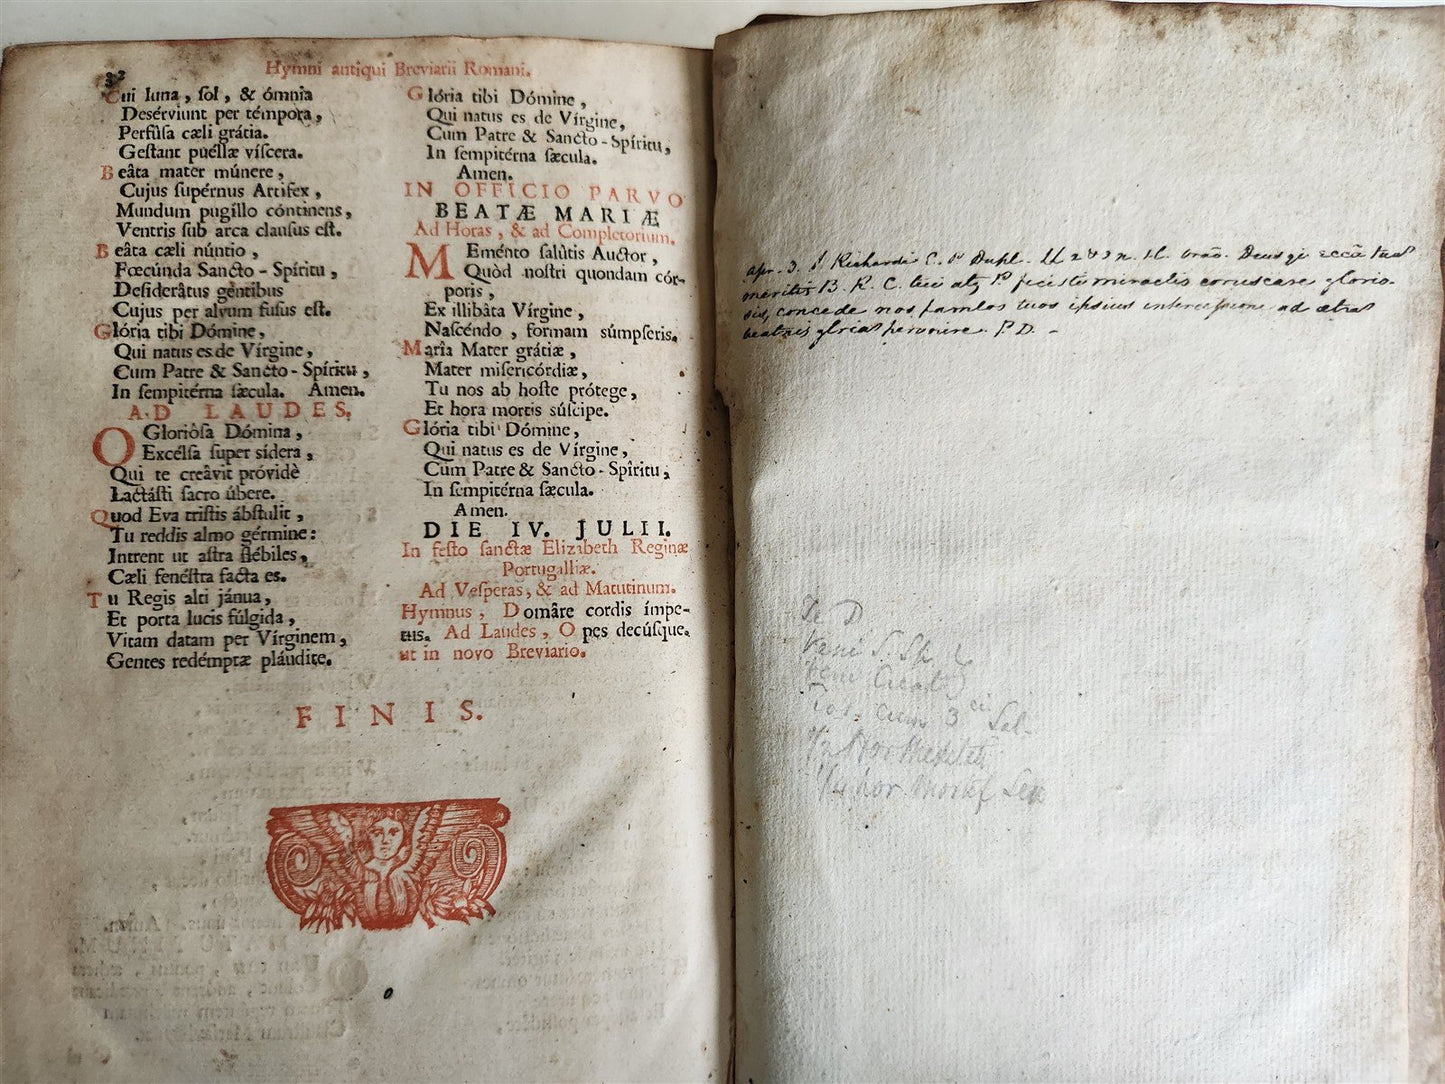 32
Hymni antiqui Breviarii Romani.
Cui luna, ſol, & ómnia
Desérviunt per témpora,
Perfûſa cæli grátia.
Geſtant puéllæ víſcera.
Beâta mater múnere,
Cujus ſupérnus Artifex,
Mundum pugíllo cóntinens,
Ventris ſub arca clauſus eſt.
Beâta cæli núntio,
Fœcúnda Sancto-Spíritu,
Deſiderâtus géntibus
Cujus per alvum fuſus eſt.
Glória tibi Dómine,
Qui natus es de Vírgine,
Cum Patre & Sancto-Spíritu,
In ſempitérna ſæcula. Amen.
AD LAUDES.
O Gloriôſa Dómina,
Excélſa ſuper sídera,
Qui te creâvit próvidè
Lactáſti ſacro úbere.
Quod Eva triſtis ábſtulit,
Tu reddis almo gérmine:
Intrent ut aſtra flébiles,
Cæli fenéſtra facta es.
Tu Regis alti jánua,
Et porta lucis fúlgida,
Vitam datam per Vírginem,
Gentes redémptæ pláudite.
Glória tibi Dómine,
Qui natus es de Vírgine,
Cum Patre & Sancto-Spíritu,
In ſempitérna ſæcula.
Amen.
IN OFFICIO PARVO
BEATÆ MARIÆ
Ad Horas, & ad Completorium.
MEménto ſalûtis Auctor,
Quòd noſtri quondam cór-
poris,
Ex illibâta Vírgine,
Naſcéndo, formam súmpſeris.
María Mater grátiæ,
Mater miſericórdiæ,
Tu nos ab hoſte prótege,
Et hora mortis súſcipe.
Glória tibi Dómine,
Qui natus es de Vírgine,
Cum Patre & Sancto-Spíritu,
In ſempitérna ſæcula.
Amen.
DIE IV. JULII.
In feſto ſanctæ Elizabeth Reginæ
Portugalliæ.
Ad Veſperas, & ad Matutinum.
Hymnus, Domâre cordis ímpe-
tus. Ad Laudes, Opes decúſque.
ut in novo Breviario.
FINIS.
Apr. 3. Richardi C. Deus qi eccâ tuâ
meritis B. R. C. tui atq Pō feciſti miraculis coruscare glorio-
sis, concede nos famlos tuos ipsius intercessione ad ætrâ
beatuis gloriâ pervenire. P.D.
Te D
Veni S. Sp.
Veni Creat
cum 3
½ Hor Meditati
¼ hor